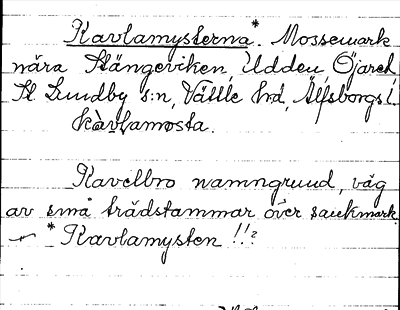 Kavlamysterna*. Mossemark
nära Stängeviken, Udden Öjared
St. Lundby s:n, Vättle hd, Älfsborgs l.
kàvlamosta.
Kavelbro namngrund, väg
av små trädstammar över sankmark
* Kavlamysten !!?